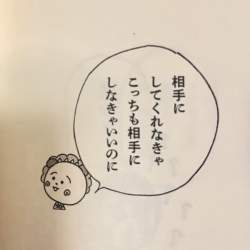 相手に
してくれなきゃ
こっちも相手に
しなきゃいいのに